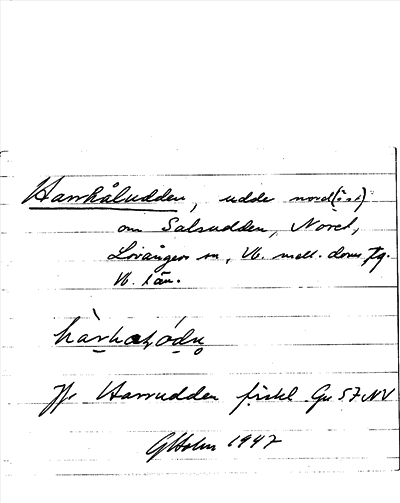 Harrkåludden, udde nord(öst)
om Salsudden, Noret,
Lövångers sn, Vb. mell. doms. tg.
Vb. län.
Jfr Harrudden fiskl. Gu 57 NV
GHolm 1947